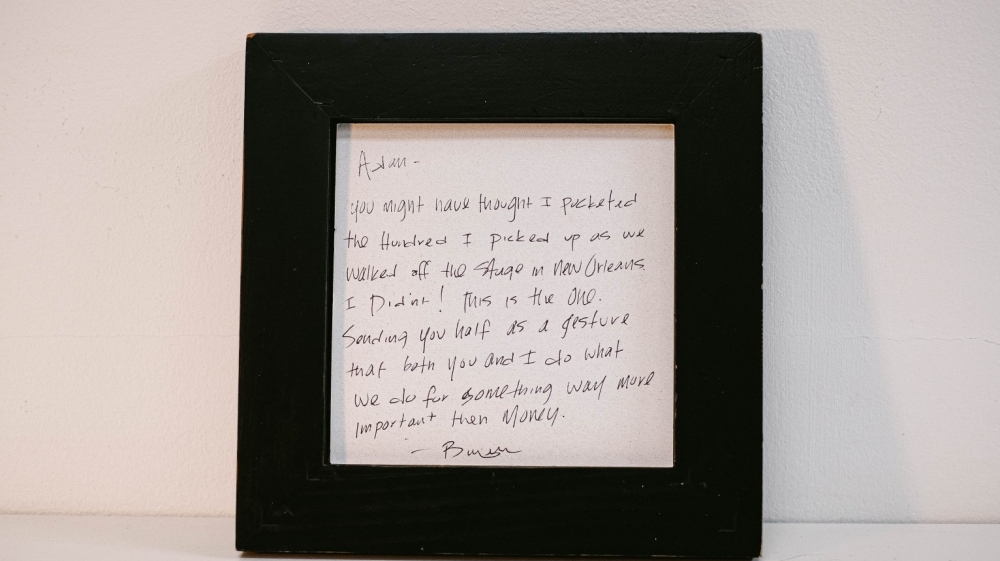 Adam -
you might have thought I pocketed
the Hundred I picked up as we
walked off the stage in New Orleans.
I Didn't! This is the one.
Sending you half as a gesture
that both you and I do what
we do for something way more
important then Money.
-